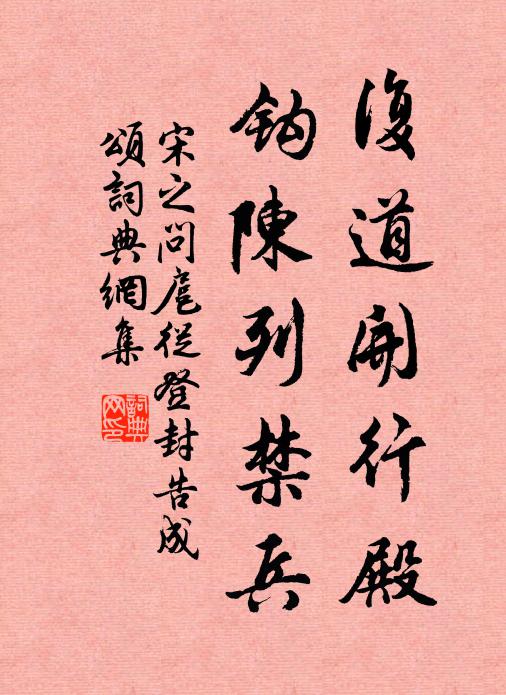 復道開行殿
鈎陳列禁兵
宋之问扈從登封告成
頌詞典網集
詞典网印